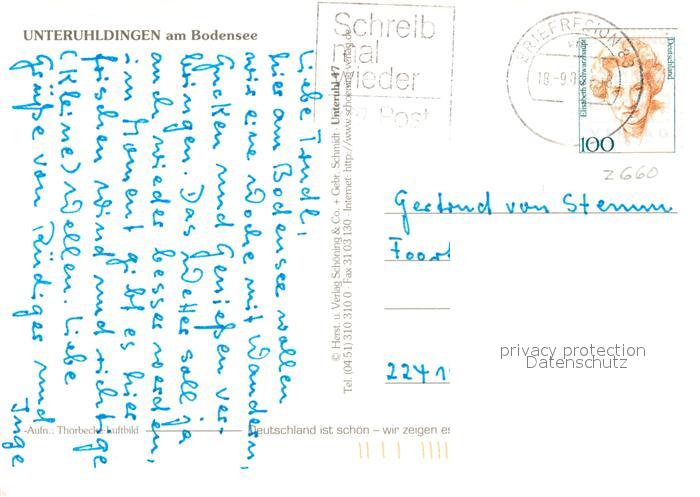 UNTERUHLDINGEN am Bodensee
Schreib
mal
wieder
Post
BRIEFREGION 88
18.-9.0
Deutschland
Elisabeth Schwarzhaupt
100
Z 660
Liebe Trudl,
hier am Bodensee wollen
wir eine Woche mit Wandern,
Gucken und Genießen ver-
bringen. Das Wetter soll ja
auch wieder besser werden,
im Moment gibt es hier
frischen Wind und richtige
(kleine) Wellen. Liebe
Grüße von Rüdiger und
Inge
© Herst. u. Verlag Schöning & Co. + Gebr. Schmidt · Unteruhl 47
Tel. (04 51) 310 310 0 · Fax 31 03 130 · Internet: http://www.schoening-verlag.de
Gertrud von Stemm
Foor
2241
privacy protection
Datenschutz
Aufn.: Thorbecke-Luftbild
Deutschland ist schön – wir zeigen es